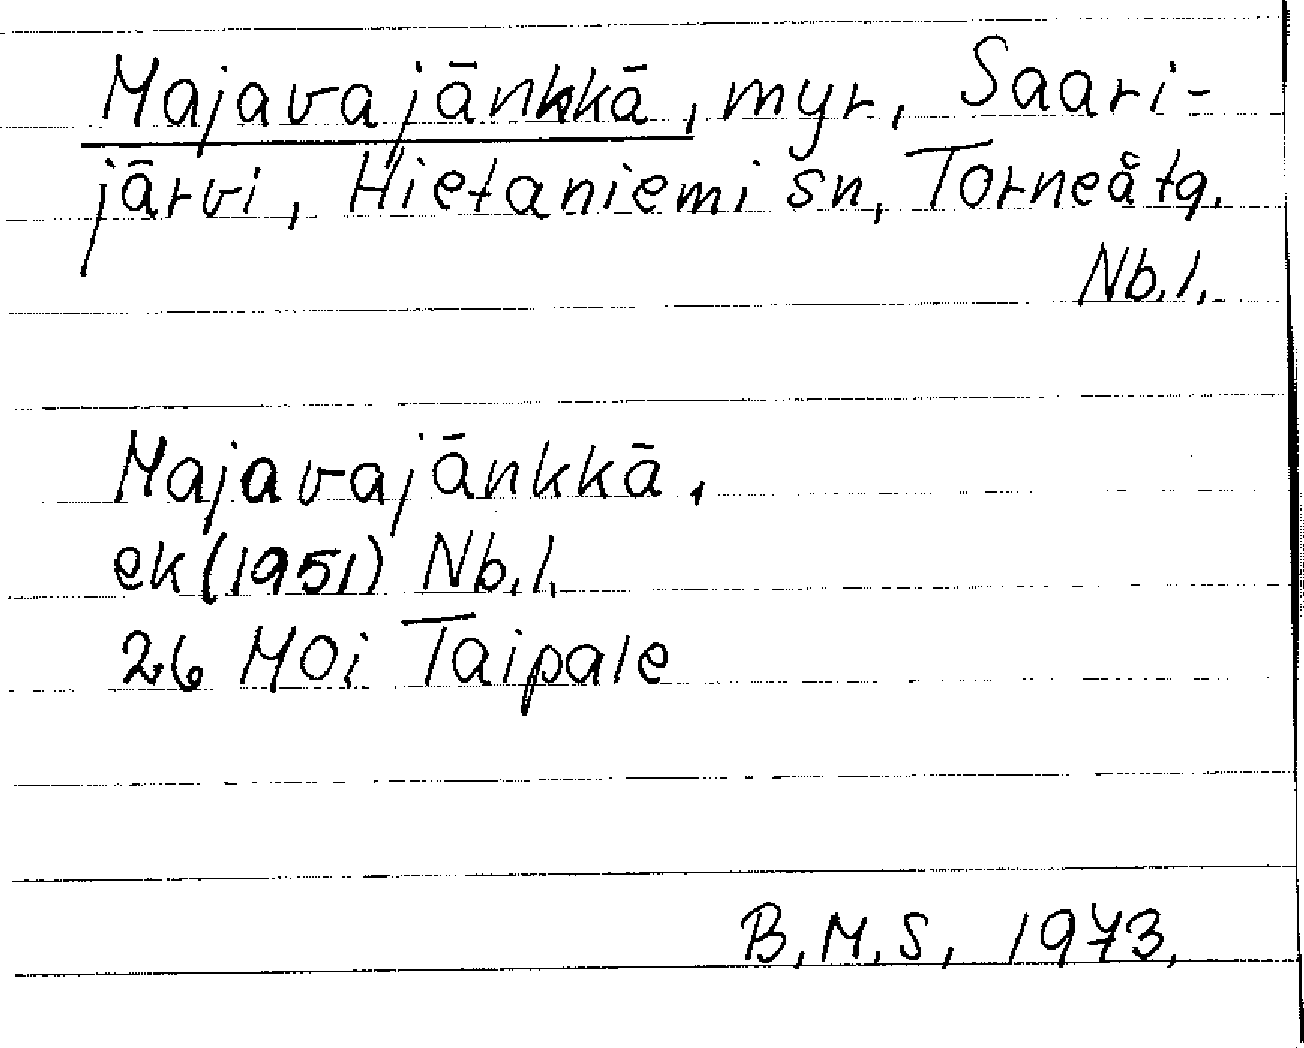 Majavajänkkä, myr, Saari-
järvi, Hietaniemi sn, Torneå tg.
Nb.l.
Majavajänkkä.
ek (1951) Nb.l.
26 MOi Taipale
B.M.S. 1973.